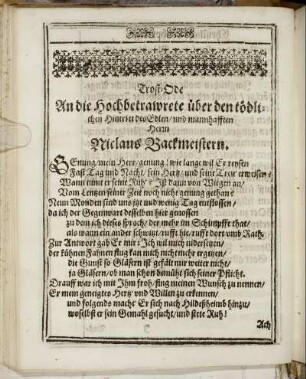 Trost-Ode
An die Hochbetrawrete über den tödli-
chen Hintritt des Edlen/ und mannhafften
Herrn
Niclaus Backmeistern.
GEnung/mein Herr/genung! wie lange wil Er reysen
Fast Tag und Nacht/ sein Hertz/ und seine Trew erweisen/
Wann nimt er seine Ruh? Ist dann von Wiegen an/
Vom Lentzen seiner Zeit noch nicht genung gethan?
Neun Monden sind uns itzt und wenig Tag entflossen/
da ich der Gegenwart desselben hier genossen
zu dem ich dieses sprach/ der mehr im Schimpffe that/
als wann ein ander schweigt/ rufft hie/ rufft dort umb Rath.
Zur Antwort gab Er mir: Ich wil mich niedersetzen/
der kühnen Fahnen flug kan mich nicht mehr ergetzen/
die Gunst so Gläsern ist gefält mir weiter nicht/
ja Gläsern/ ob man schon bemüht sich seiner Pflicht.
Drauff war ich mit Ihm froh/ fing meinen Wunsch zu nennen/
Er mein geneigtes Hertz und Willen zu erkennen/
und folgends macht Er sich nach Hildeßheimb hinzu/
woselbst er sein Gemahl gesucht/ und stete Ruh!
Ach